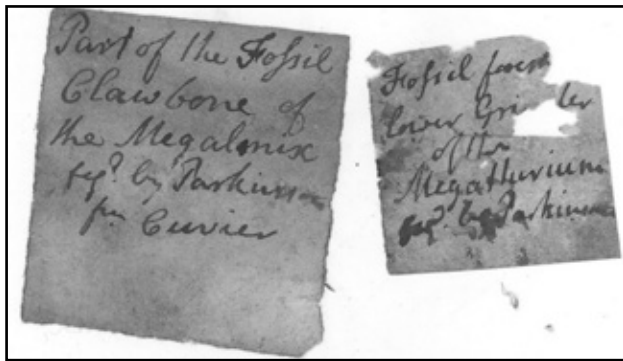 Part of the Fossil
Claw bone of
the Megalonix
fig.d by Parkinson
fm Cuvier
Fossil
lower Grinder
of the
Megatherium
fig.d by Parkinson